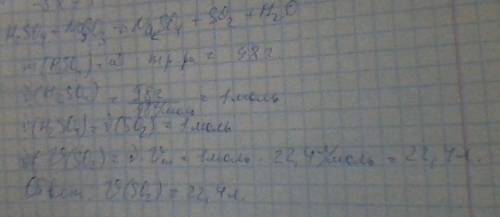 H₂SO₄ + Na₂SO₃ = Na₂SO₄ + SO₂ + H₂O
m(H₂SO₄) = 98 г.
ν(H₂SO₄) = 98г / 98г/моль = 1 моль
ν(H₂SO₄) = ν(SO₂) = 1 моль
V(SO₂) = ν · Vm = 1 моль · 22,4 л/моль = 22,4 л.
Ответ: V(SO₂) = 22,4 л.